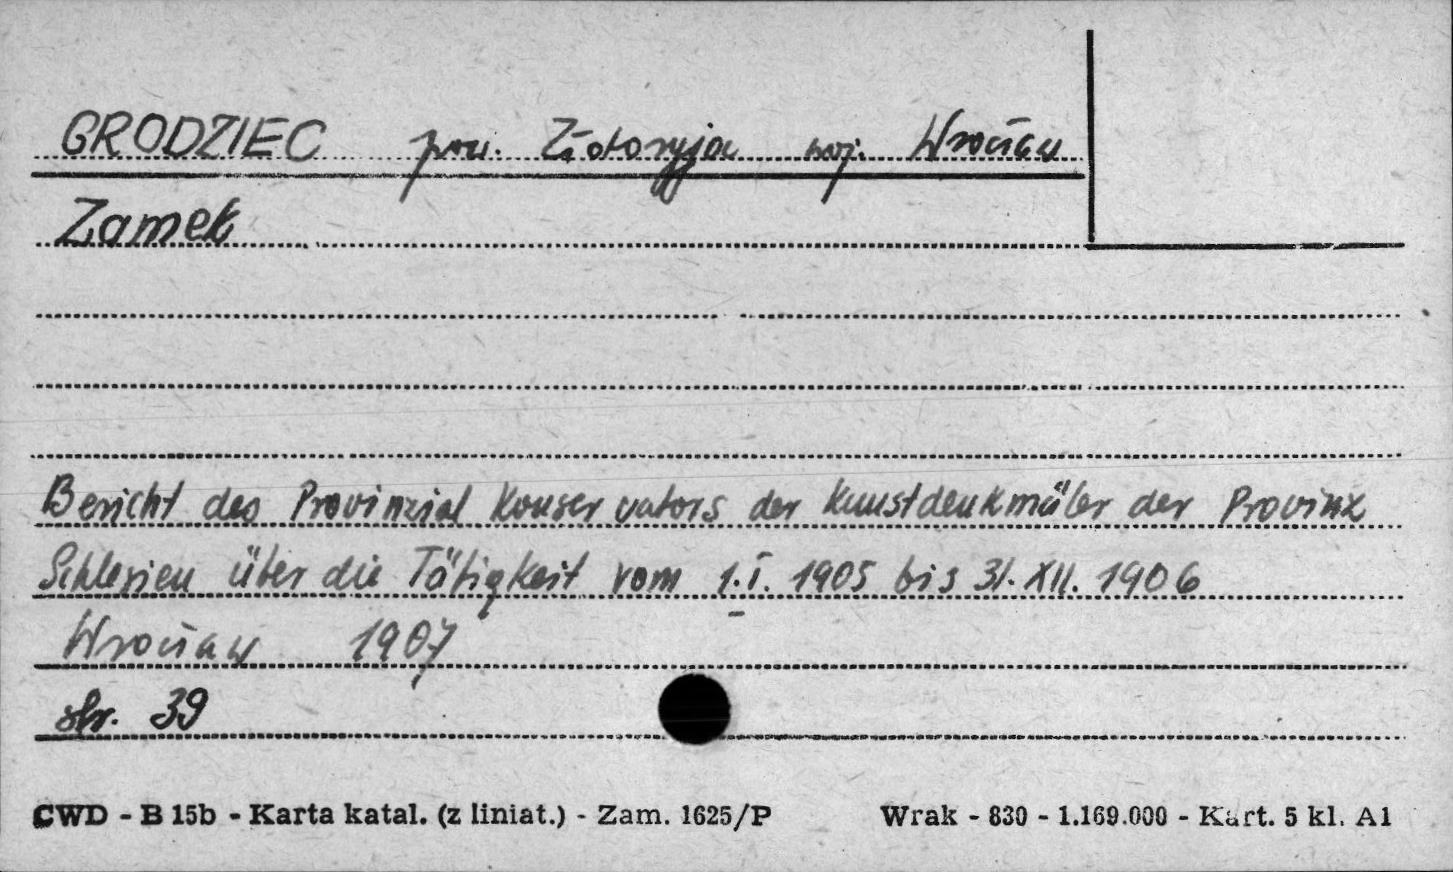 GRODZIEC pow. Złotoryja woj. Wrocław
Zamek
Bericht des Provinzial Konservators der Kunstdenkmäler der Provinz
Schlesien über die Tätigkeit vom 1.I. 1905 bis 31.XII. 1906
Wrocław 1907
str. 39
CWD - B 15b - Karta katal. (z liniat.) - Zam. 1625/P Wrak - 830 - 1.169.000 - Kart. 5 kl. A1